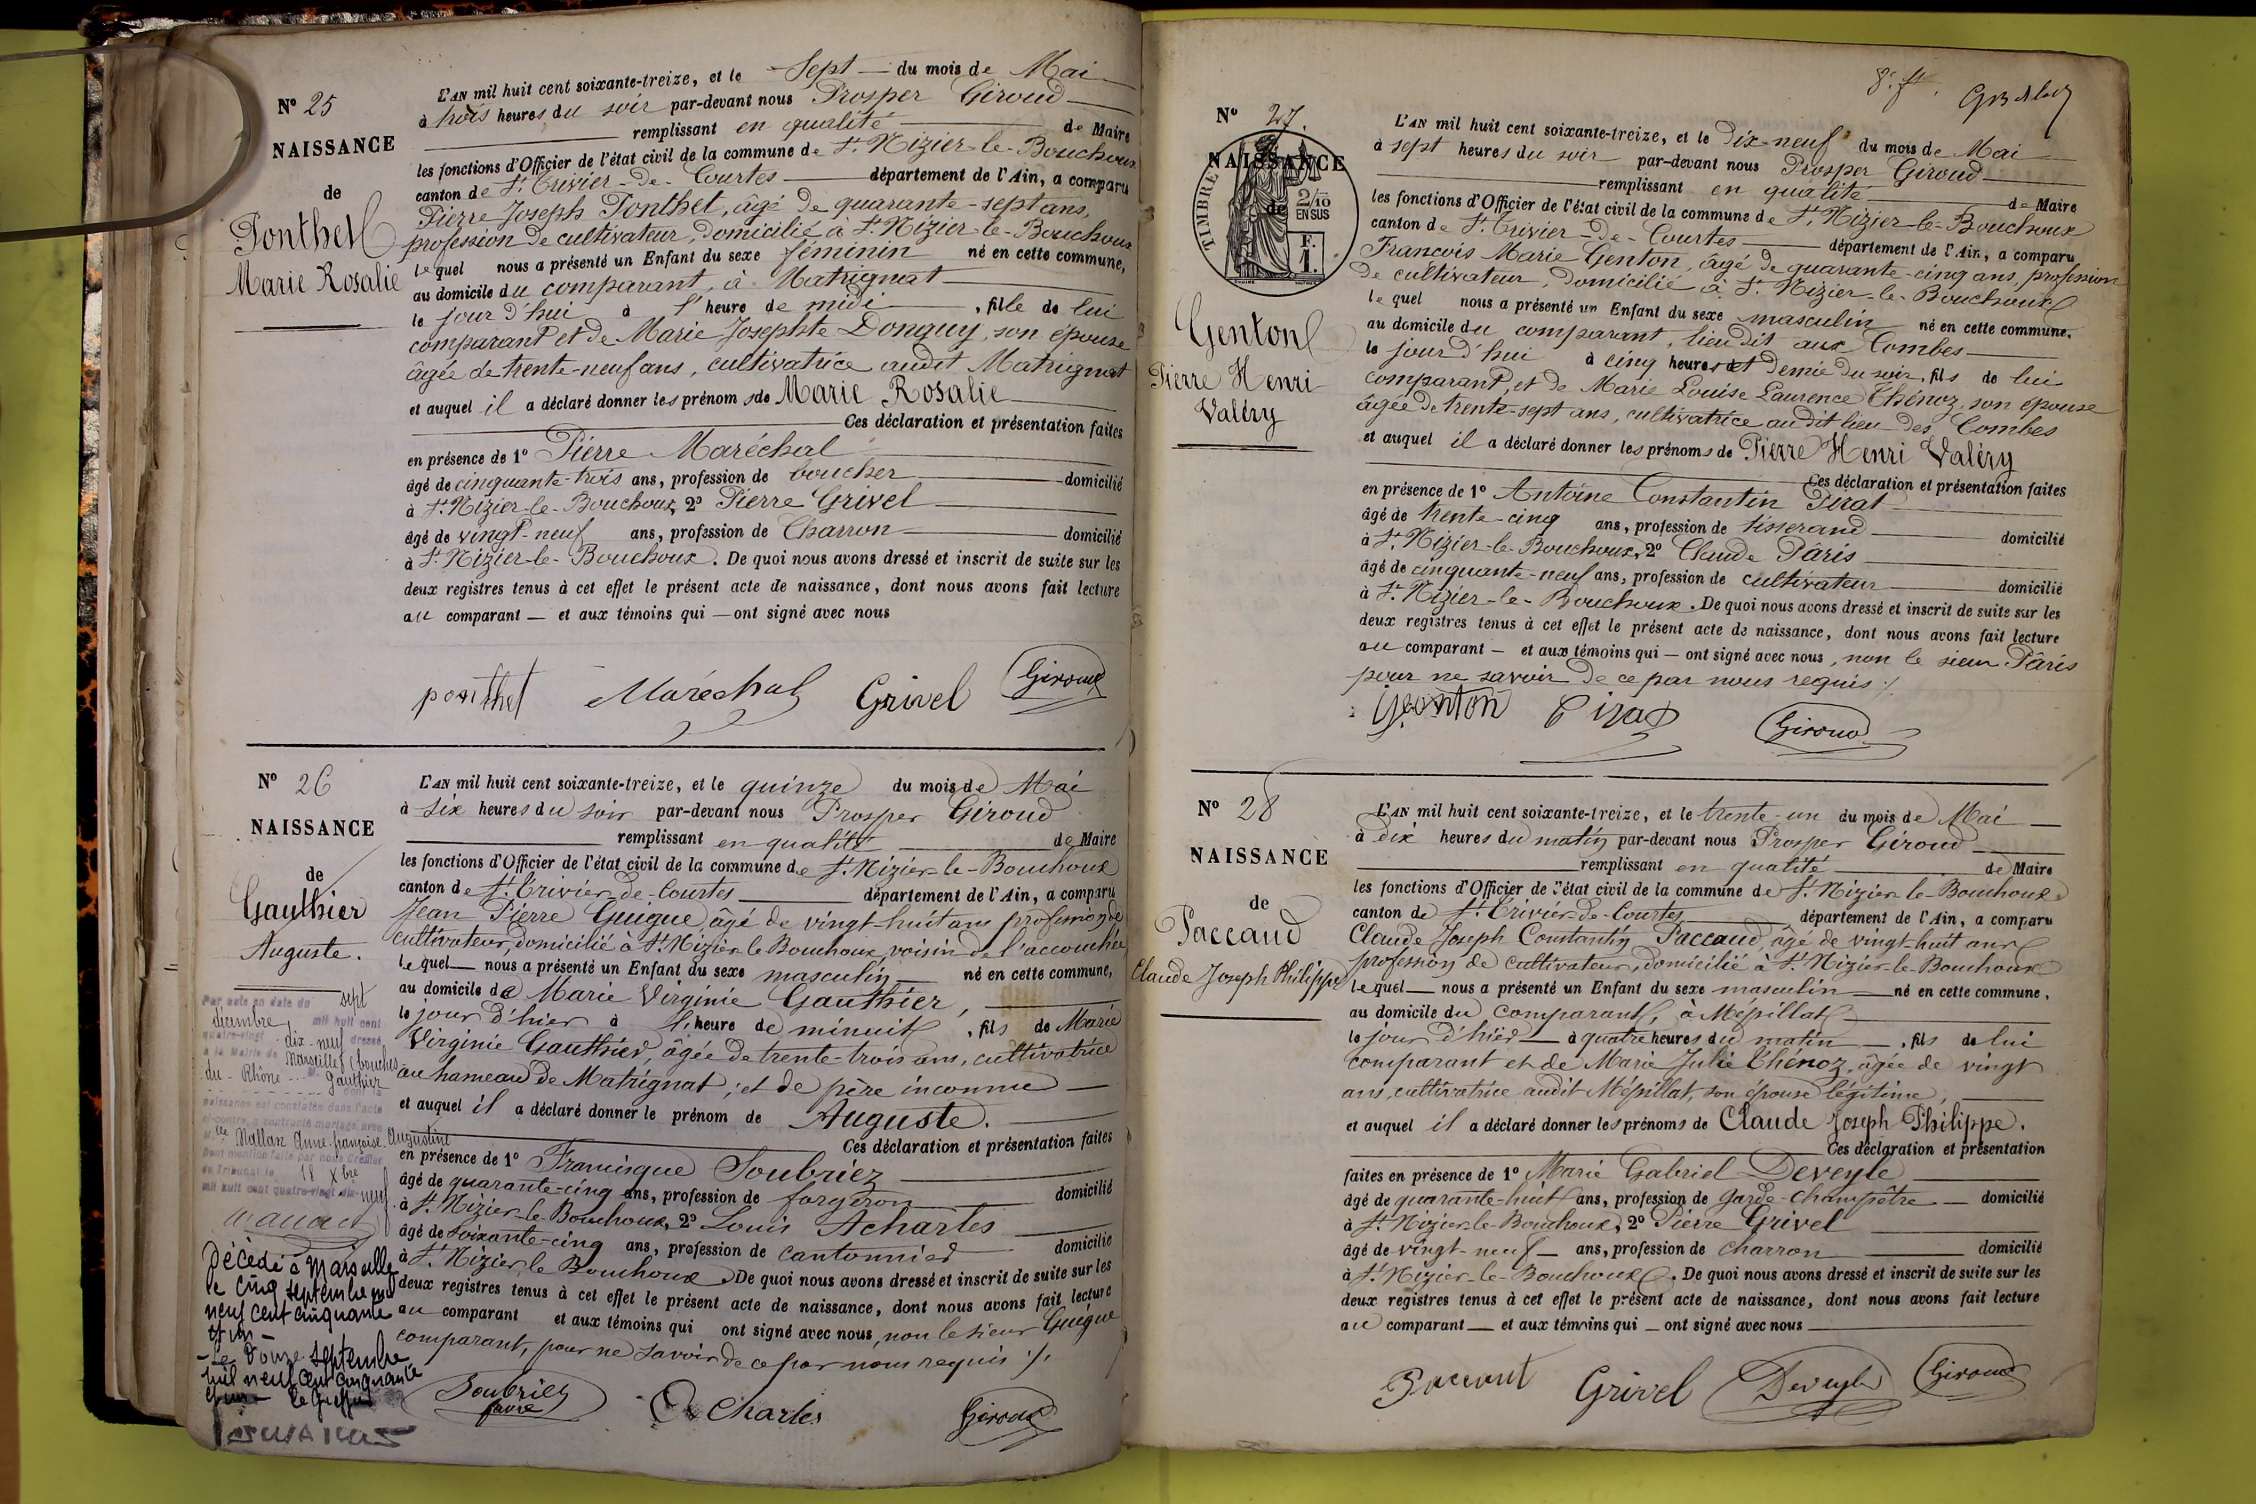 N° 25
NAISSANCE
de
Ponthet
Marie Rosalie
L'AN mil huit cent soixante-treize, et le Sept du mois de Mai
à trois heures du soir par-devant nous Prosper Giroud
remplissant en qualité de Maire
les fonctions d'Officier de l'état civil de la commune de St. Nizier-le-Bouchoux
canton de St. Trivier-de-Courtes département de l'Ain, a comparu
Pierre Joseph Ponthet, âgé de quarante-sept ans,
profession de cultivateur, domicilié à St. Nizier-le-Bouchoux
lequel nous a présenté un Enfant du sexe féminin né en cette commune,
au domicile du comparant, à Matrignat
le jour d'hui à l'heure de midi, fille de lui
comparant et de Marie Josephte Donguy, son épouse
âgée de trente-neuf ans, cultivatrice audit Matrignat
et auquel il a déclaré donner les prénoms de Marie Rosalie
Ces déclaration et présentation faites
en présence de 1° Pierre Maréchal
âgé de cinquante-trois ans, profession de boucher domicilié
à St. Nizier-le-Bouchoux, 2° Pierre Grivel
âgé de vingt-neuf ans, profession de Charron domicilié
à St. Nizier-le-Bouchoux. De quoi nous avons dressé et inscrit de suite sur les
deux registres tenus à cet effet le présent acte de naissance, dont nous avons fait lecture
au comparant — et aux témoins qui — ont signé avec nous
ponthet Maréchal Grivel Giroud
N° 26
NAISSANCE
de
Gauthier
Auguste.
Par acte en date du sept
décembre mil huit cent
quatre-vingt-dix-neuf dressé
à la Mairie de Marseille (bouches
du-Rhône Gauthier
dont la
naissance est constatée dans l'acte
ci-contre, a contracté mariage avec
Mlle Nallan Anne françoise Augustine
Dont mention faite par nous Greffier
du Tribunal le 18 Xbre
mil huit cent quatre-vingt dix-neuf.
Décédé à Marseille
le cinq septembre mil
neuf cent cinquante
et un —
— Le douze septembre
mil neuf cent cinquante
et un — le Greffier
L'AN mil huit cent soixante-treize, et le quinze du mois de Mai
à six heures du soir par-devant nous Prosper Giroud
remplissant en qualité de Maire
les fonctions d'Officier de l'état civil de la commune de St. Nizier-le-Bouchoux
canton de St. Trivier-de-Courtes département de l'Ain, a comparu
Jean Pierre Guigue, âgé de vingt-huit ans profession de
cultivateur, domicilié à St. Nizier le Bouchoux, voisin de l'accouchée
lequel nous a présenté un Enfant du sexe masculin né en cette commune,
au domicile de Marie Virginie Gauthier,
le jour d'hier à l'heure de minuit, fils de Marie
Virginie Gauthier, âgée de trente-trois ans, cultivatrice
au hameau de Matrignat; et de père inconnu —
et auquel il a déclaré donner le prénom de Auguste.
Ces déclaration et présentation faites
en présence de 1° Francisque Soubriez
âgé de quarante-cinq ans, profession de forgeron domicilié
à St. Nizier-le-Bouchoux, 2° Louis Acharles
âgé de soixante-cinq ans, profession de cantonnier domicilié
à St. Nizier le Bouchoux. De quoi nous avons dressé et inscrit de suite sur les
deux registres tenus à cet effet le présent acte de naissance, dont nous avons fait lecture
au comparant et aux témoins qui ont signé avec nous, non le sieur Guigue
comparant, pour ne savoir de ce par nous requis ./.
Soubriez A Charles Giroud
8e ft.
N° 27.
NAISSANCE
de
TIMBRE
2/10
EN SUS
F.
1.
Genton
Pierre Henri
Valéry
L'AN mil huit cent soixante-treize, et le Dix-neuf du mois de Mai
à sept heures du soir par-devant nous Prosper Giroud
remplissant en qualité de Maire
les fonctions d'Officier de l'état civil de la commune de St. Nizier-le-Bouchoux
canton de St. Trivier-de-Courtes département de l'Ain, a comparu
François Marie Genton, âgé de quarante-cinq ans, profession
de cultivateur, domicilié à St. Nizier-le-Bouchoux
lequel nous a présenté un Enfant du sexe masculin né en cette commune,
au domicile du comparant, lieu dit aux Combes
le jour d'hui à cinq heures et demie du soir, fils de lui
comparant, et de Marie Louise Laurence Thénoz, son épouse
âgée de trente-sept ans, cultivatrice audit lieu des Combes
et auquel il a déclaré donner les prénoms de Pierre Henri Valéry
Ces déclaration et présentation faites
en présence de 1° Antoine Constantin Pirat
âgé de trente-cinq ans, profession de tisserand domicilié
à St. Nizier-le-Bouchoux, 2° Claude Pâris
âgé de cinquante-neuf ans, profession de cultivateur domicilié
à St. Nizier-le-Bouchoux. De quoi nous avons dressé et inscrit de suite sur les
deux registres tenus à cet effet le présent acte de naissance, dont nous avons fait lecture
au comparant — et aux témoins qui — ont signé avec nous, non le sieur Pâris
pour ne savoir de ce par nous requis ./.
Genton Pirat Giroud
N° 28
NAISSANCE
de
Paccaud
Claude Joseph Philippe
L'AN mil huit cent soixante-treize, et le trente-un du mois de Mai
à dix heures du matin par-devant nous Prosper Giroud
remplissant en qualité de Maire
les fonctions d'Officier de l'état civil de la commune de St. Nizier-le-Bouchoux
canton de St. Trivier-de-Courtes département de l'Ain, a comparu
Claude Joseph Constantin Paccaud, âgé de vingt-huit ans
profession de cultivateur, domicilié à St. Nizier-le-Bouchoux
lequel — nous a présenté un Enfant du sexe masculin — né en cette commune,
au domicile du comparant, à Mépillat
le jour d'hier — à quatre heures du matin —, fils de lui
comparant et de Marie Julie Thénoz, âgée de vingt
ans, cultivatrice audit Mépillat, son épouse légitime,
et auquel il a déclaré donner les prénoms de Claude Joseph Philippe.
Ces déclaration et présentation
faites en présence de 1° Marie Gabriel Deveyle
âgé de quarante-huit ans, profession de garde-champêtre — domicilié
à St. Nizier-le-Bouchoux, 2° Pierre Grivel
âgé de vingt-neuf — ans, profession de charron domicilié
à St. Nizier-le-Bouchoux. De quoi nous avons dressé et inscrit de suite sur les
deux registres tenus à cet effet le présent acte de naissance, dont nous avons fait lecture
au comparant — et aux témoins qui — ont signé avec nous
Paccaud Grivel Deveyle Giroud